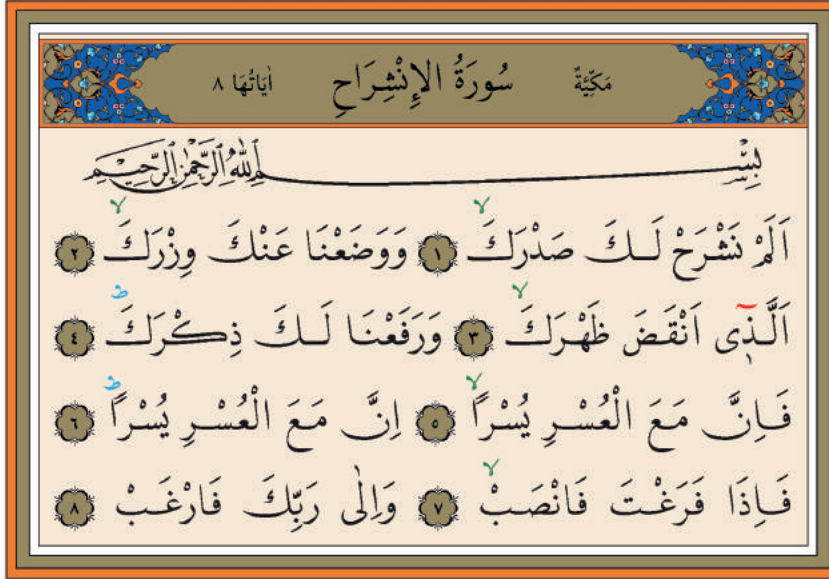 مَكِّيَّةٌ سُورَةُ الإِنْشِرَاحِ اٰيَاتُهَا ٨
بِسْمِ اللّٰهِ الرَّحْمٰنِ الرَّحِيمِ
اَلَمْ نَشْرَحْ لَكَ صَدْرَكَۙ ١ وَوَضَعْنَا عَنْكَ وِزْرَكَۙ ٢
اَلَّذ۪ٓى اَنْقَضَ ظَهْرَكَۙ ٣ وَرَفَعْنَا لَكَ ذِكْرَكَۜ ٤
فَاِنَّ مَعَ الْعُسْرِ يُسْراًۙ ٥ اِنَّ مَعَ الْعُسْرِ يُسْراًۜ ٦
فَاِذَا فَرَغْتَ فَانْصَبْۙ ٧ وَاِلٰى رَبِّكَ فَارْغَبْ ٨